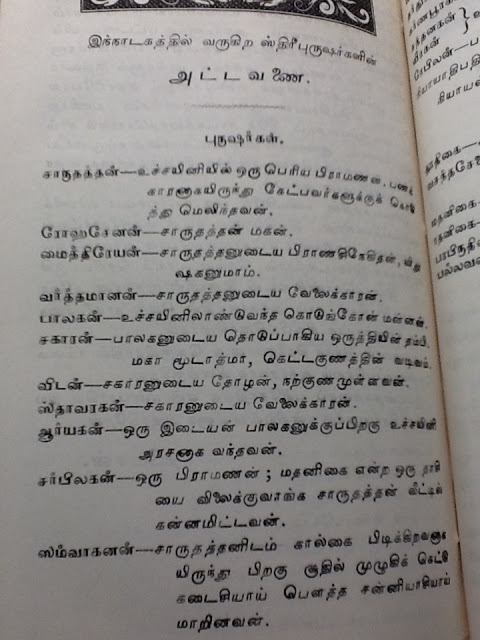 இந்நாடகத்தில் வருகிற ஸ்திரீபுருஷர்களின்
அட்டவணை.
புருஷர்கள்.
சாருதத்தன்—உச்சயினியில் ஒரு பெரிய பிராமணன்.
காரனாகயிருந்து கேட்பவர்களுக்குக்
த்து மெலிந்தவன்.
ரோஹசேனன்—சாருதத்தன் மகன்.
மைத்திரேயன்—சாருதத்தனுடைய பிராணசிநேகிதன்,
ஷகனுமாம்.
வர்த்தமானன்—சாருதத்தனுடைய வேலைக்காரன்.
பாலகன்—உச்சயினிலாண்டுவந்த கொடுங்கோன் மன்னன்.
சகாரன்—பாலகனுடைய தொடுப்பாகிய ஒருத்தியின் தம்பி.
மகா மூடாத்மா, கெட்டகுணத்தின் வடிவம்.
விடன்—சகாரனுடைய தோழன், நற்குணமுள்ளவன்.
ஸ்தாவரகன்—சகாரனுடைய வேலைக்காரன்.
ஆர்யகன்—ஒரு இடையன் பாலகனுக்குப்பிறகு உச்சயினி
அரசனாக வந்தவன்.
சர்பிலகன்—ஒரு பிராமணன்; மதனிகை என்ற ஒரு தாதி
யை விலைக்குவாங்க சாருதத்தன் வீட்டில்
கன்னமிட்டவன்.
ஸம்வாகனன்—சாருதத்தனிடம் கால்கை பிடிக்கிறவனாக
யிருந்து பிறகு சூதில் முழுகிக் கெட்டு
கடைசியாய் பௌத்த சன்னியாசியாய்
மாறினவன்.